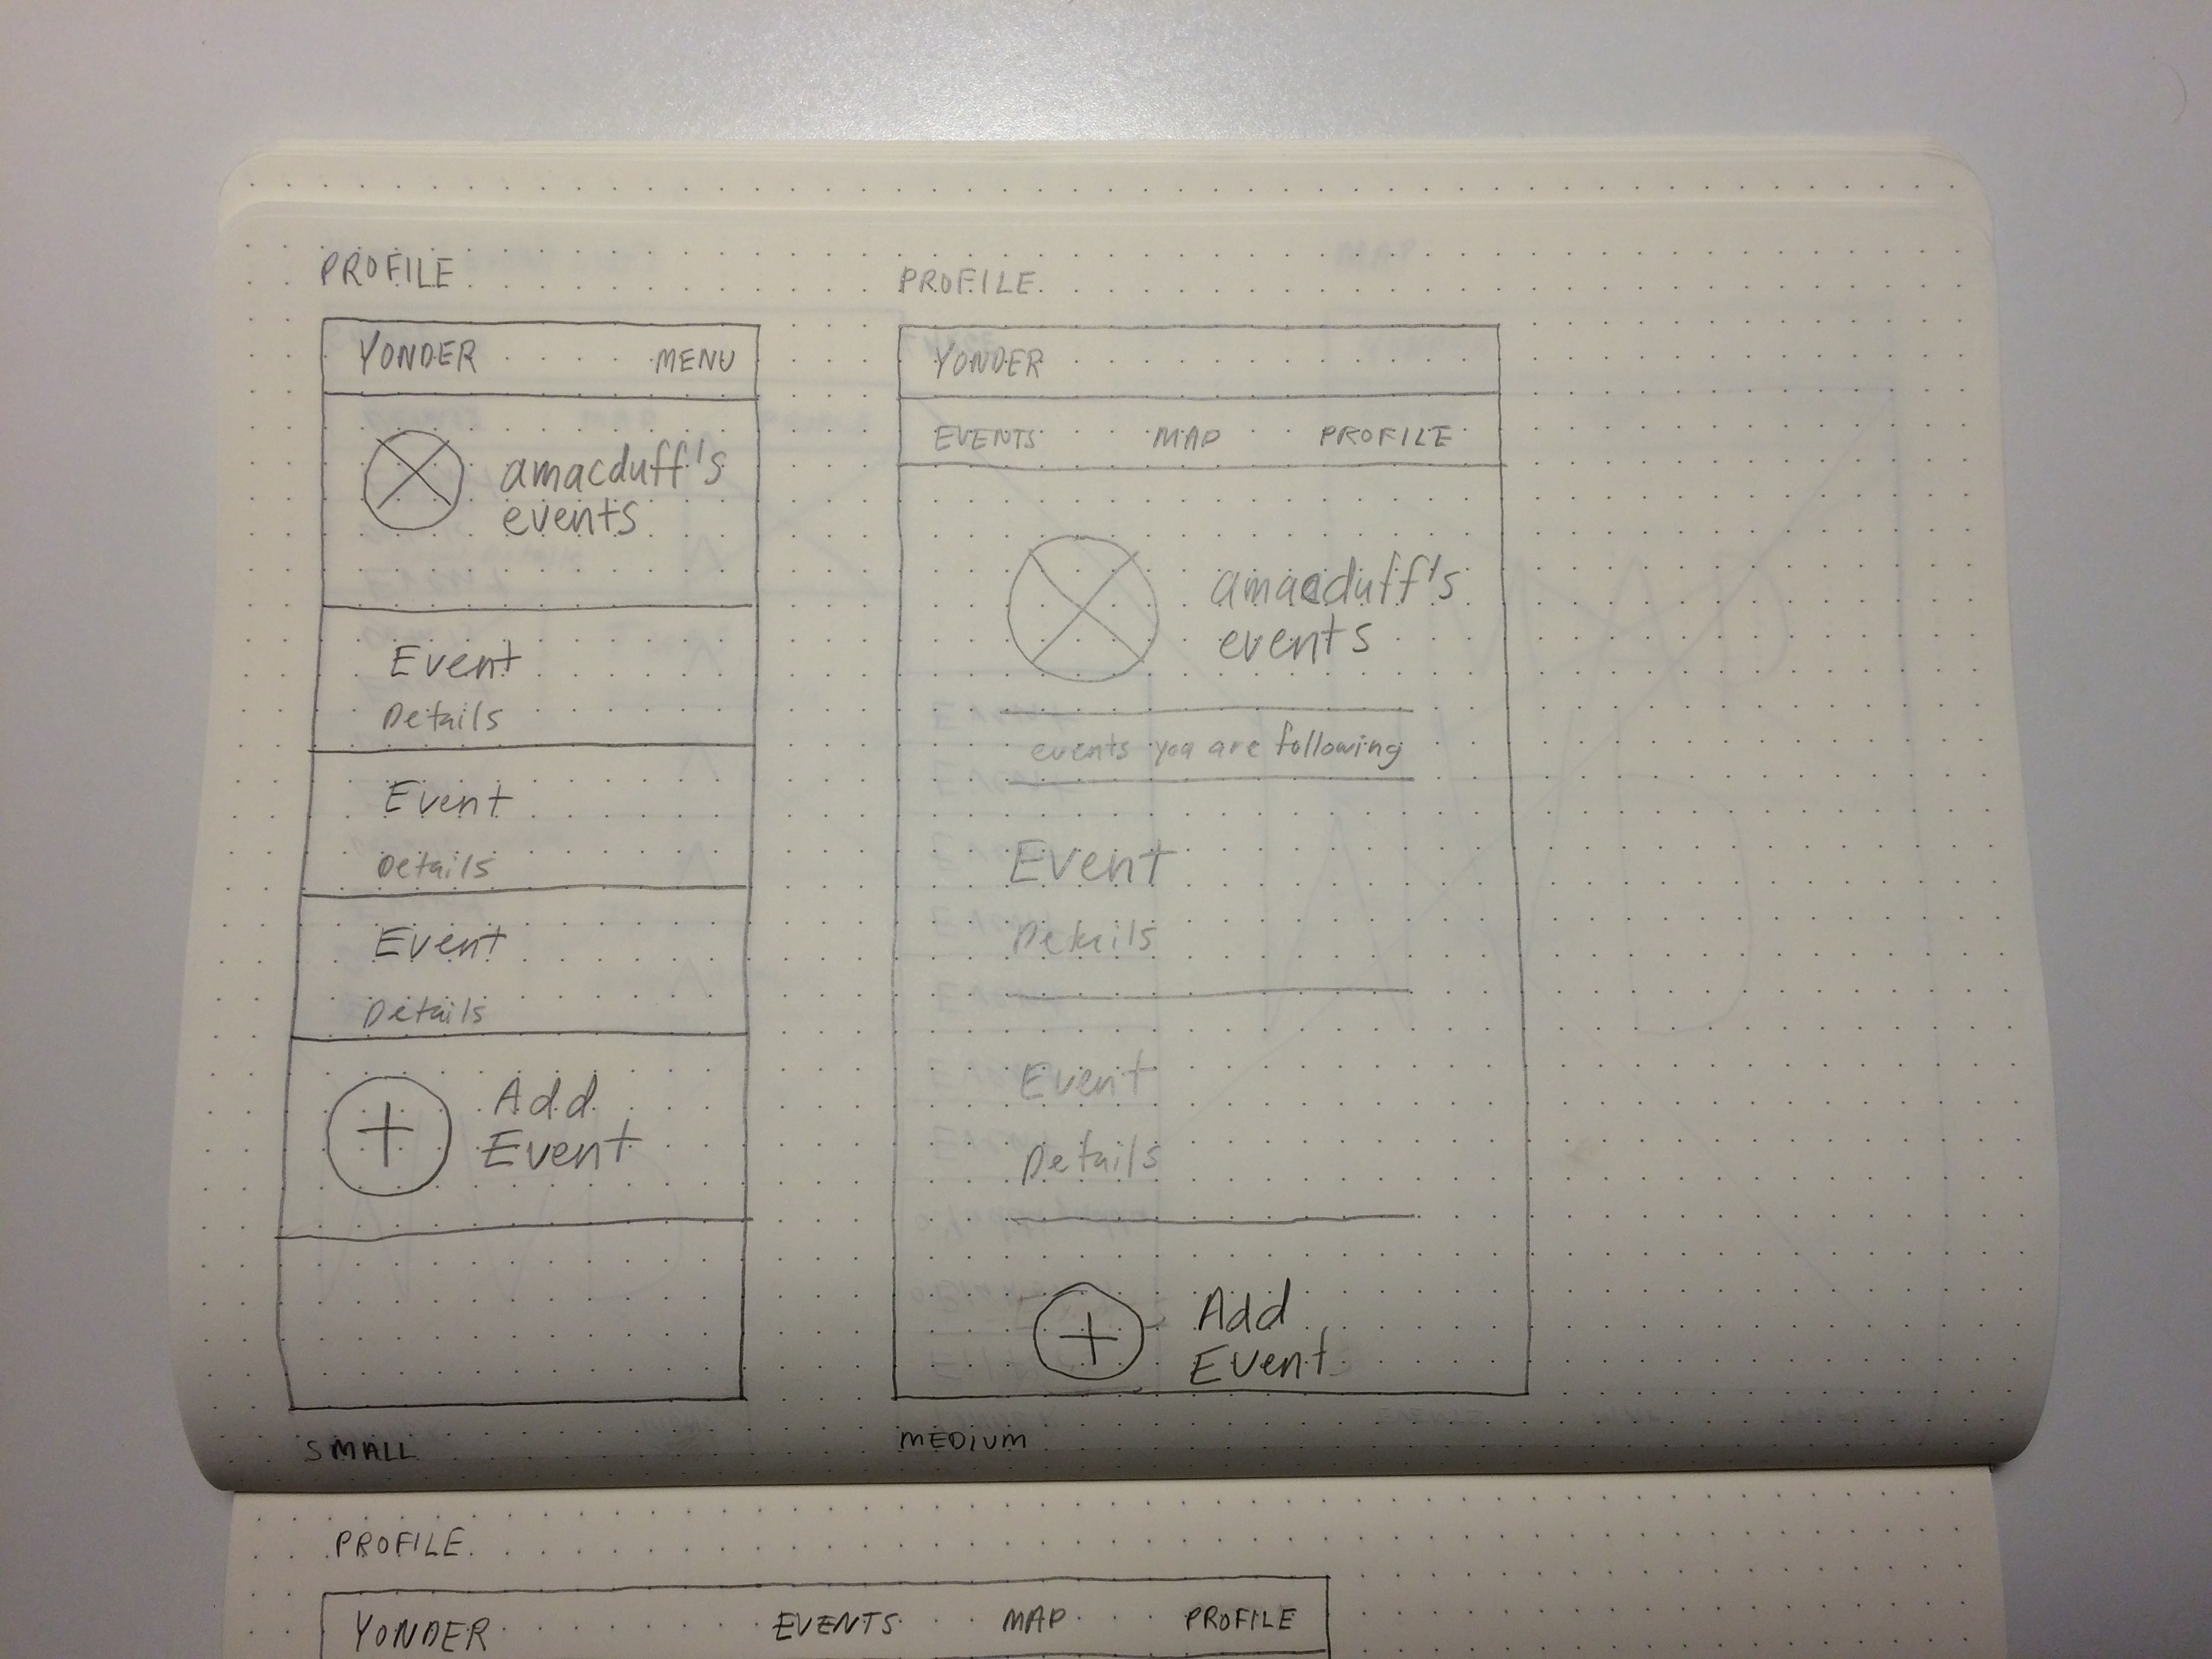 PROFILE
YONDER MENU
amacduff's
events
Event
Details
Event
Details
Event
Details
Add
Event
SMALL
PROFILE
YONDER
EVENTS MAP PROFILE
amacduff's
events
events you are following
Event
Details
Event
Details
Add
Event
MEDIUM
PROFILE
YONDER EVENTS MAP PROFILE